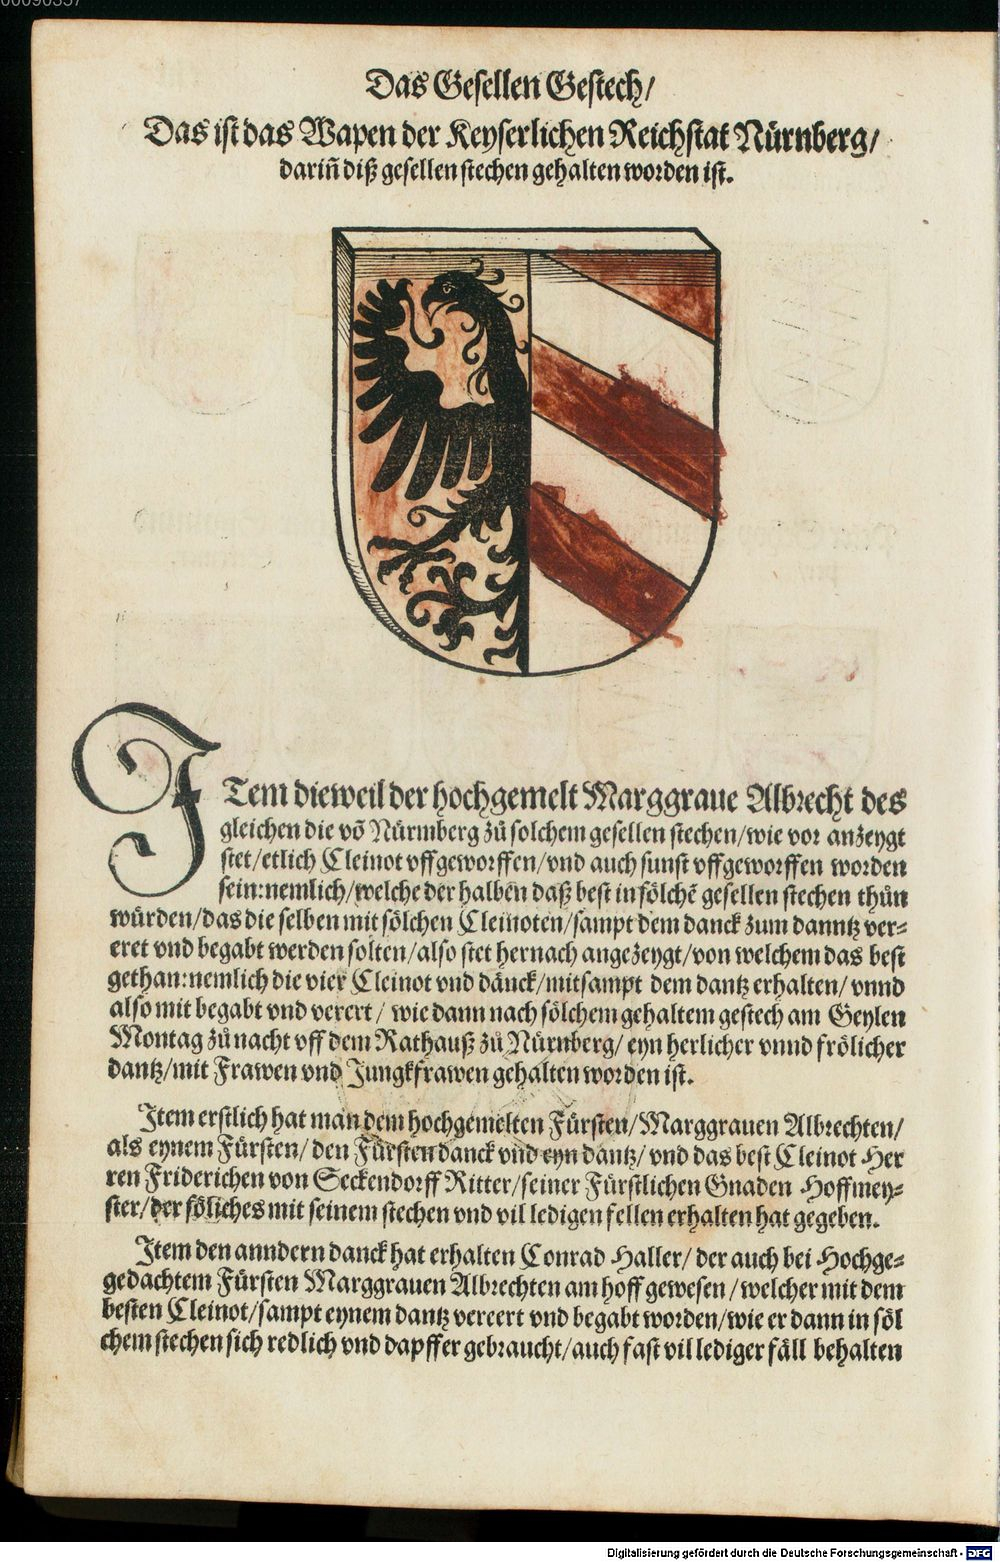 00090357
Das Gesellen Gestech/
Das ist das Wapen der Keyserlichen Reichstat Nürnberg/
dariñ diß gesellen stechen gehalten worden ist.
ITem dieweil der hochgemelt Marggraue Albrecht des
gleichen die võ Nürmberg zů solchem gesellen stechen/wie vor anzeygt
stet/etlich Cleinot vffgeworffen/vnd auch sunst vffgeworffen worden
sein:nemlich/welche der halben daß best in sölchẽ gesellen stechen thůn
würden/das die selben mit sölchen Cleinoten/sampt dem danck zum danntz ver-
eret vnd begabt werden solten/also stet hernach angezeygt/von welchem das best
gethan:nemlich die vier Cleinot vnd dänck/mitsampt dem dantz erhalten/vnnd
also mit begabt vnd verert/ wie dann nach sölchem gehaltem gestech am Geylen
Montag zů nacht vff dem Rathauß zů Nürnberg/ eyn herlicher vnnd frölicher
dantz/mit Frawen vnd Jungkfrawen gehalten worden ist.
Item erstlich hat man dem hochgemelten Fürsten/Marggrauen Albrechten/
als eynem Fürsten/ den Fürsten danck vnd eyn dantz/ vnd das best Cleinot Her
ren Friderichen von Seckendorff Ritter/seiner Fürstlichen Gnaden Hoffmey-
ster/der söliches mit seinem stechen vnd vil ledigen fellen erhalten hat gegeben.
Item den anndern danck hat erhalten Conrad Haller/ der auch bei Hochge-
gedachtem Fürsten Marggrauen Albrechten am hoff gewesen/welcher mit dem
besten Cleinot/sampt eynem dantz vereert vnd begabt worden/wie er dann in söl
chem stechen sich redlich vnd dapffer gebraucht/auch fast vil lediger fäll behalten
Digitalisierung gefördert durch die Deutsche Forschungsgemeinschaft - DFG